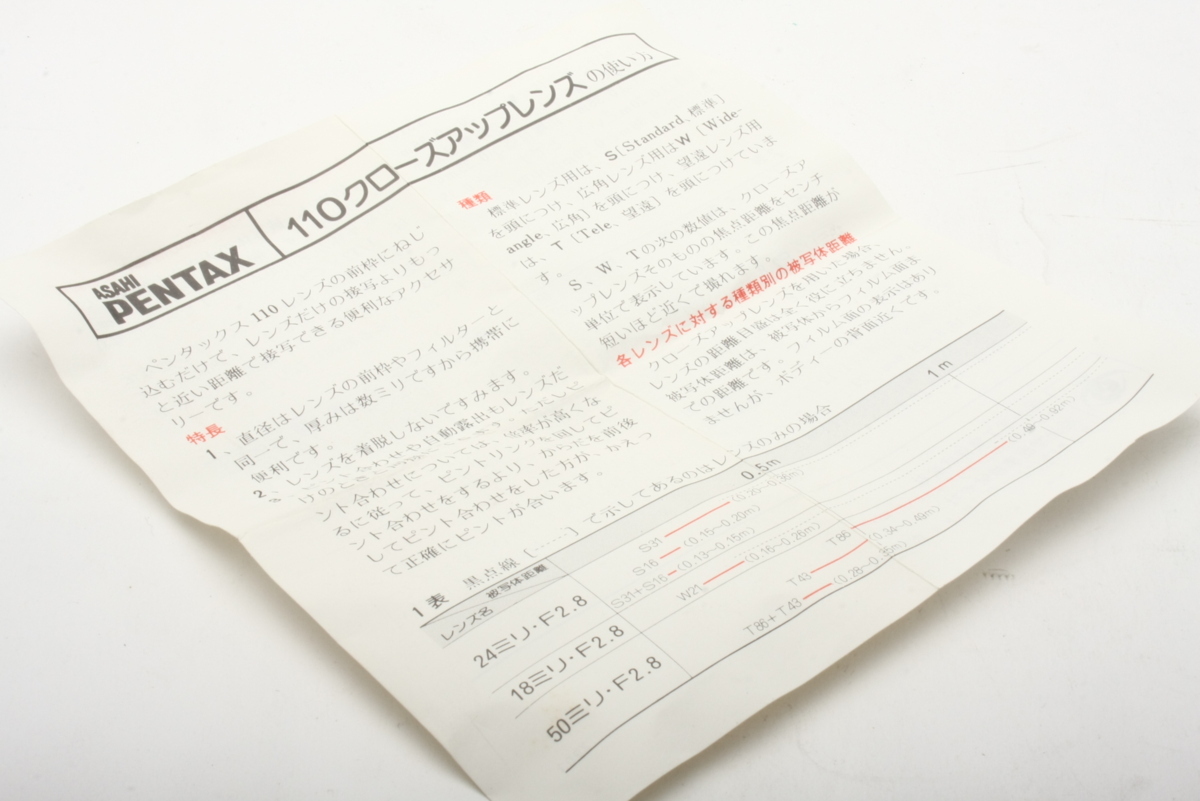 ASAHI
PENTAX
110クローズアップレンズの使い方
ペンタックス110レンズの前枠にねじ
込むだけで、レンズだけの接写よりもっ
と近い距離で接写できる便利なアクセサ
リーです。
特長
1、直径はレンズの前枠やフィルターと
同一で、厚みは数ミリですから携帯に
便利です。
2、レンズを着脱しないですみます。
ント合わせについては、倍率が高くな
るに従って、ピントリングを回してピ
ント合わせをするより、からだを前後
してピント合わせをした方が、かえっ
て正確にピントが合います。
種類
標準レンズ用は、S〔Standard、標準〕
を頭につけ、広角レンズ用はW〔Wide-
angle、広角〕を頭につけ、望遠レンズ用
は、T〔Tele、望遠〕を頭につけていま
す。
S、W、Tの次の数値は、クローズア
ップレンズそのものの焦点距離をセンチ
単位で表示しています。この焦点距離が
短いほど近くで撮れます。
各レンズに対する種類別の被写体距離
クローズアップレンズを用いた場合、
レンズの距離目盛は全く役に立ちません。
被写体距離は、被写体からフィルム面ま
での距離です。フィルム面の表示はあり
ませんが、ボディーの背面近くです。
1表 黒点線(……)で示してあるのはレンズのみの場合
被写体距離
レンズ名
0.5m
1m
24ミリ・F2.8
S31
S16 (0.15~0.20m)
S31+S16 (0.13~0.15m)
18ミリ・F2.8
W21 (0.16~0.26m)
50ミリ・F2.8
T86
T43 (0.34~0.49m)
T86+T43